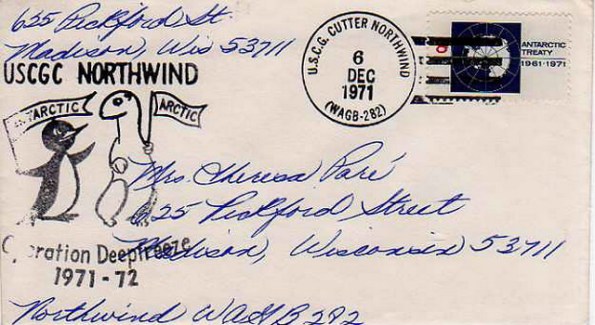 635 Pickford St.
Madison, Wis 53711
USCGC NORTHWIND
ANTARCTIC
ARCTIC
U.S.C.G. CUTTER NORTHWIND
6
DEC
1971
(WAGB-282)
ANTARCTIC
TREATY
1961-1971
Mrs. Theresa Paré
625 Pickford Street
Madison, Wisconsin 53711
Operation Deepfreeze
1971-72
Northwind WAGB 282